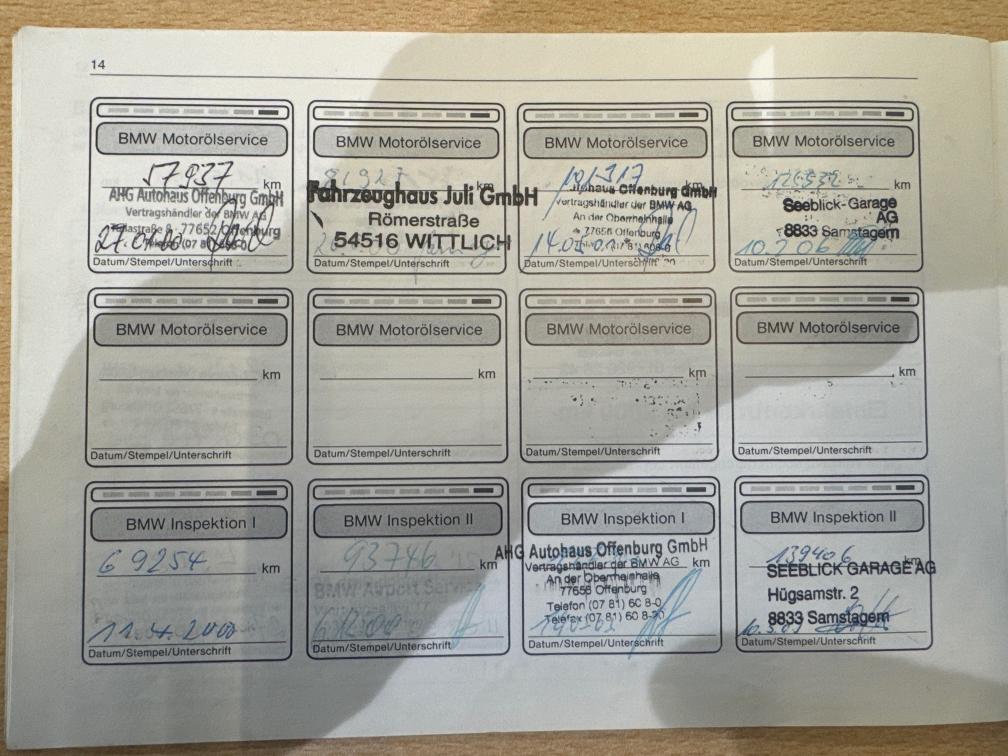 14
BMW Motorölservice
57937 km
AHG Autohaus Offenburg GmbH
Vertragshändler der BMW AG
77652 Offenburg
Datum/Stempel/Unterschrift
BMW Motorölservice
km
Fahrzeughaus Juli GmbH
Römerstraße
54516 WITTLICH
BMW Motorölservice
101317
Autohaus Offenburg GmbH
Vertragshändler der BMW AG
An der Oberrheinhalle
77656 Offenburg
Datum/Stempel/Unterschrift
BMW Motorölservice
km
Seeblick-Garage
AG
8833 Samstagern
10.2.06
Datum/Stempel/Unterschrift
BMW Motorölservice
km
Datum/Stempel/Unterschrift
BMW Motorölservice
km
Datum/Stempel/Unterschrift
BMW Motorölservice
km
Datum/Stempel/Unterschrift
BMW Motorölservice
km
Datum/Stempel/Unterschrift
BMW Inspektion I
69254 km
11.4.2000
Datum/Stempel/Unterschrift
BMW Inspektion II
93746 km
BMW Airport Service
Datum/Stempel/Unterschrift
BMW Inspektion I
km
AHG Autohaus Offenburg GmbH
Vertragshändler der BMW AG
An der Oberrheinhalle
77656 Offenburg
Telefon (07 81) 60 8-0
Telefax (07 81) 60 8-
Datum/Stempel/Unterschrift
BMW Inspektion II
139406 km
SEEBLICK GARAGE AG
Hügsamstr. 2
8833 Samstagern
Datum/Stempel/Unterschrift